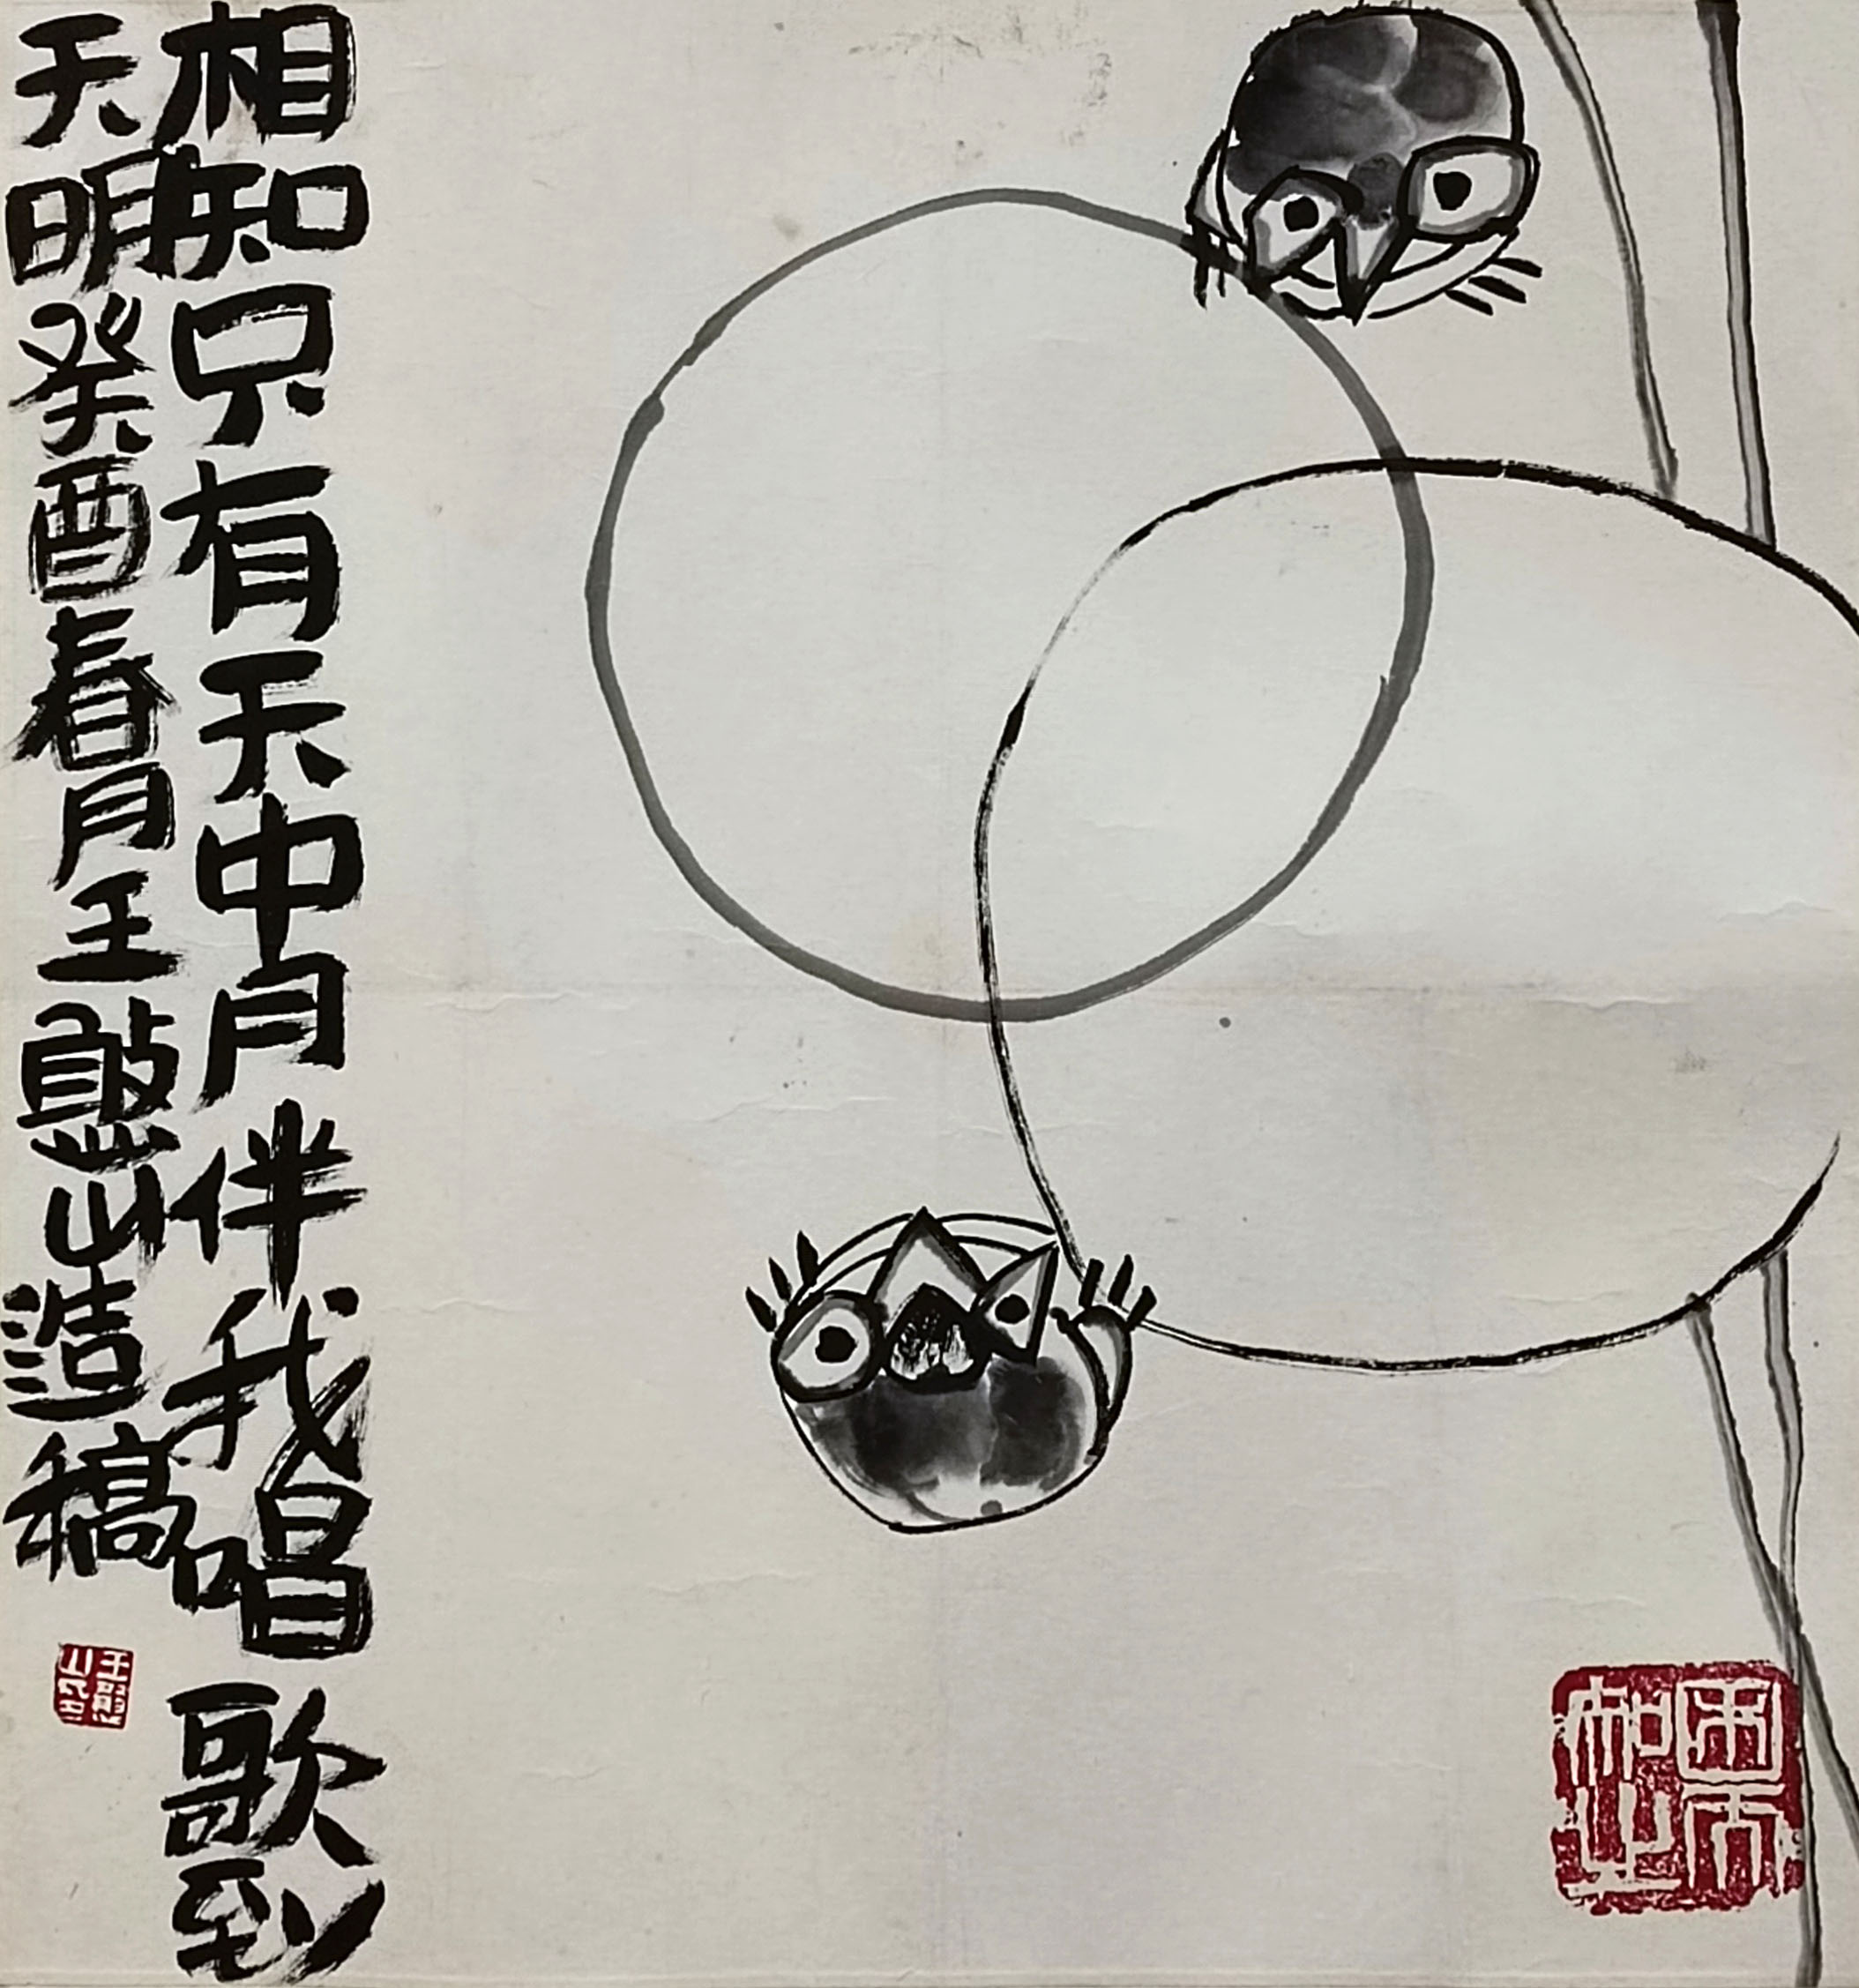 相知只有天中月伴我唱歌到
天明癸酉春月王憨山造稿
王憨山印